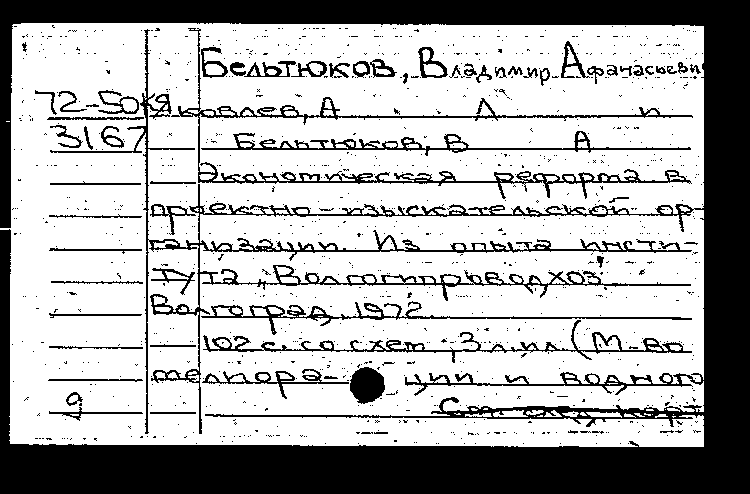 Бельтюков, Владимир Афанасьеви
72-50кя
Яковлев, А Л и
3167
Бельтюков, В А
Экономическая реформа в
проектно-изыскательской ор-
ганизации. Из опыта инсти-
тута "Волгогипроводхоз".
Волгоград, 1972.
102 с. со схем.; 3 л.ил. (М-во
мелиора- ции и водного
См. след. карт
9